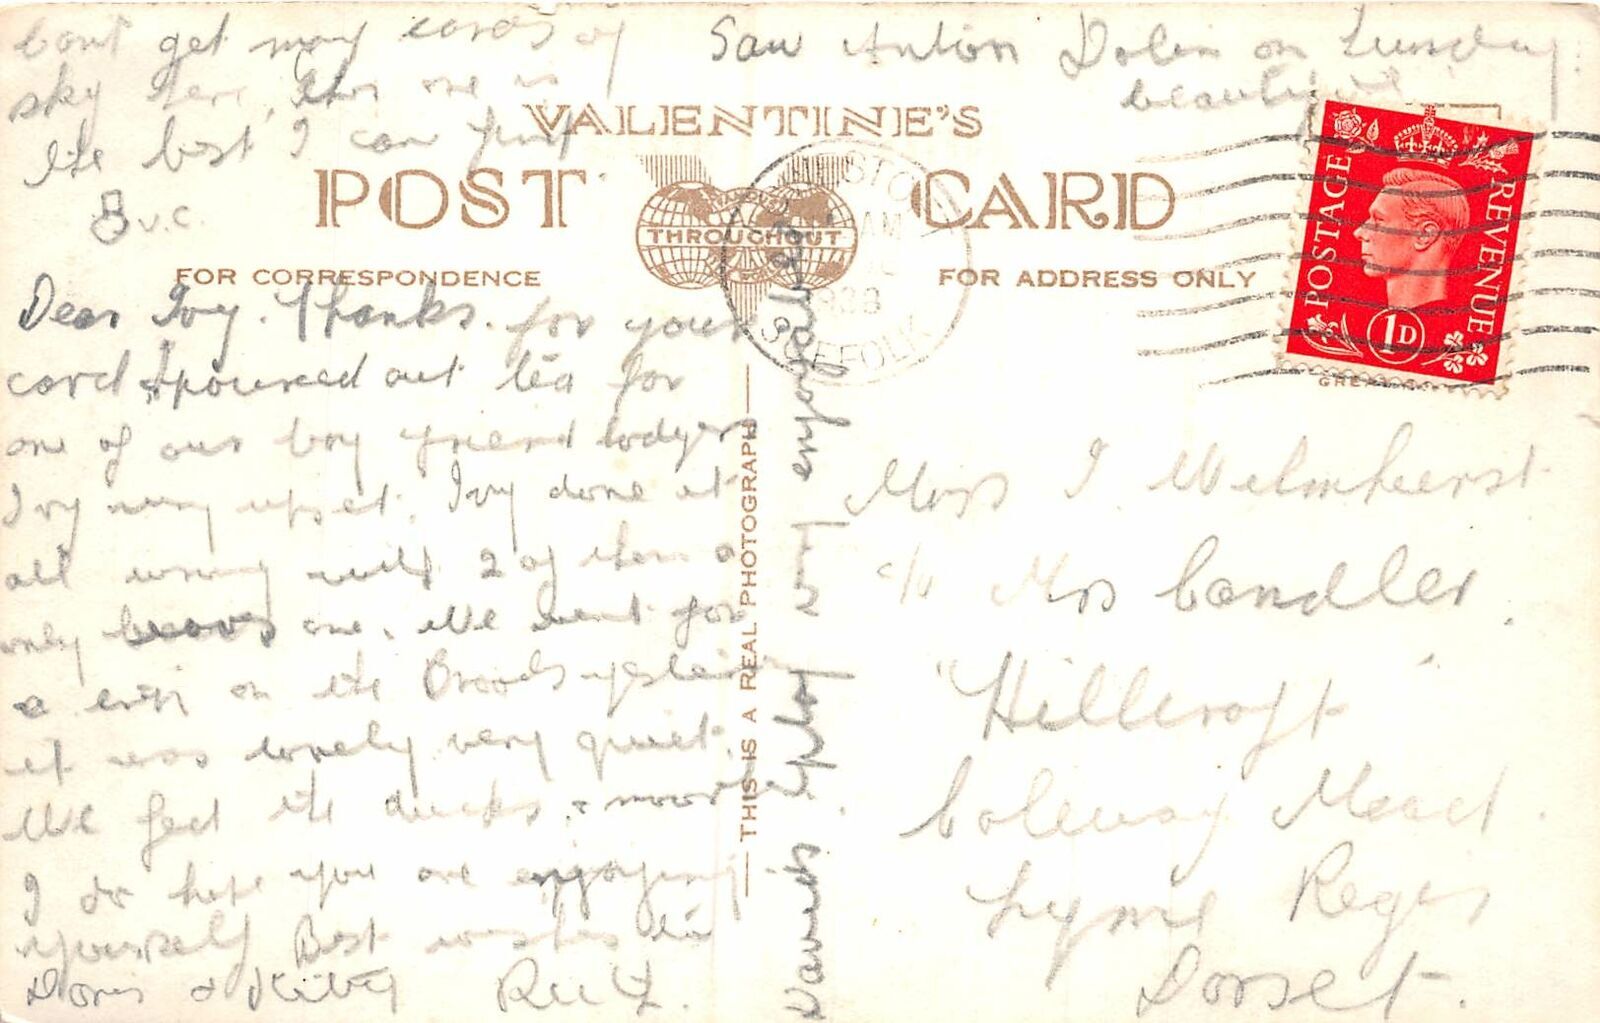 cant get many cards of
sky here, this one is
the best I can find
8 v.c.
Saw Anton Dolin on Tuesday.
beautiful
VALENTINE'S
POST CARD
FAMOUS
THROUGHOUT
FOR CORRESPONDENCE
FOR ADDRESS ONLY
AM
1938
SUFFOLK
POSTAGE REVENUE
1D
Dear Ivy. Thanks for your
card I poured out tea for
one of our boy friend lodgers
Ivy very upset. Ivy done it
all wrong with 2 of them
only one. We went for
a trip on the Broads
it was lovely very quiet.
We feed the ducks &
I do hope you are enjoying
yourself Best wishes to
Doris & Kitty Ruth.
THIS IS A REAL PHOTOGRAPH
Miss I Welmhurst
c/o Mrs Candler.
"Hillcroft"
Coleway Mead.
Lyme Regis
Dorset.